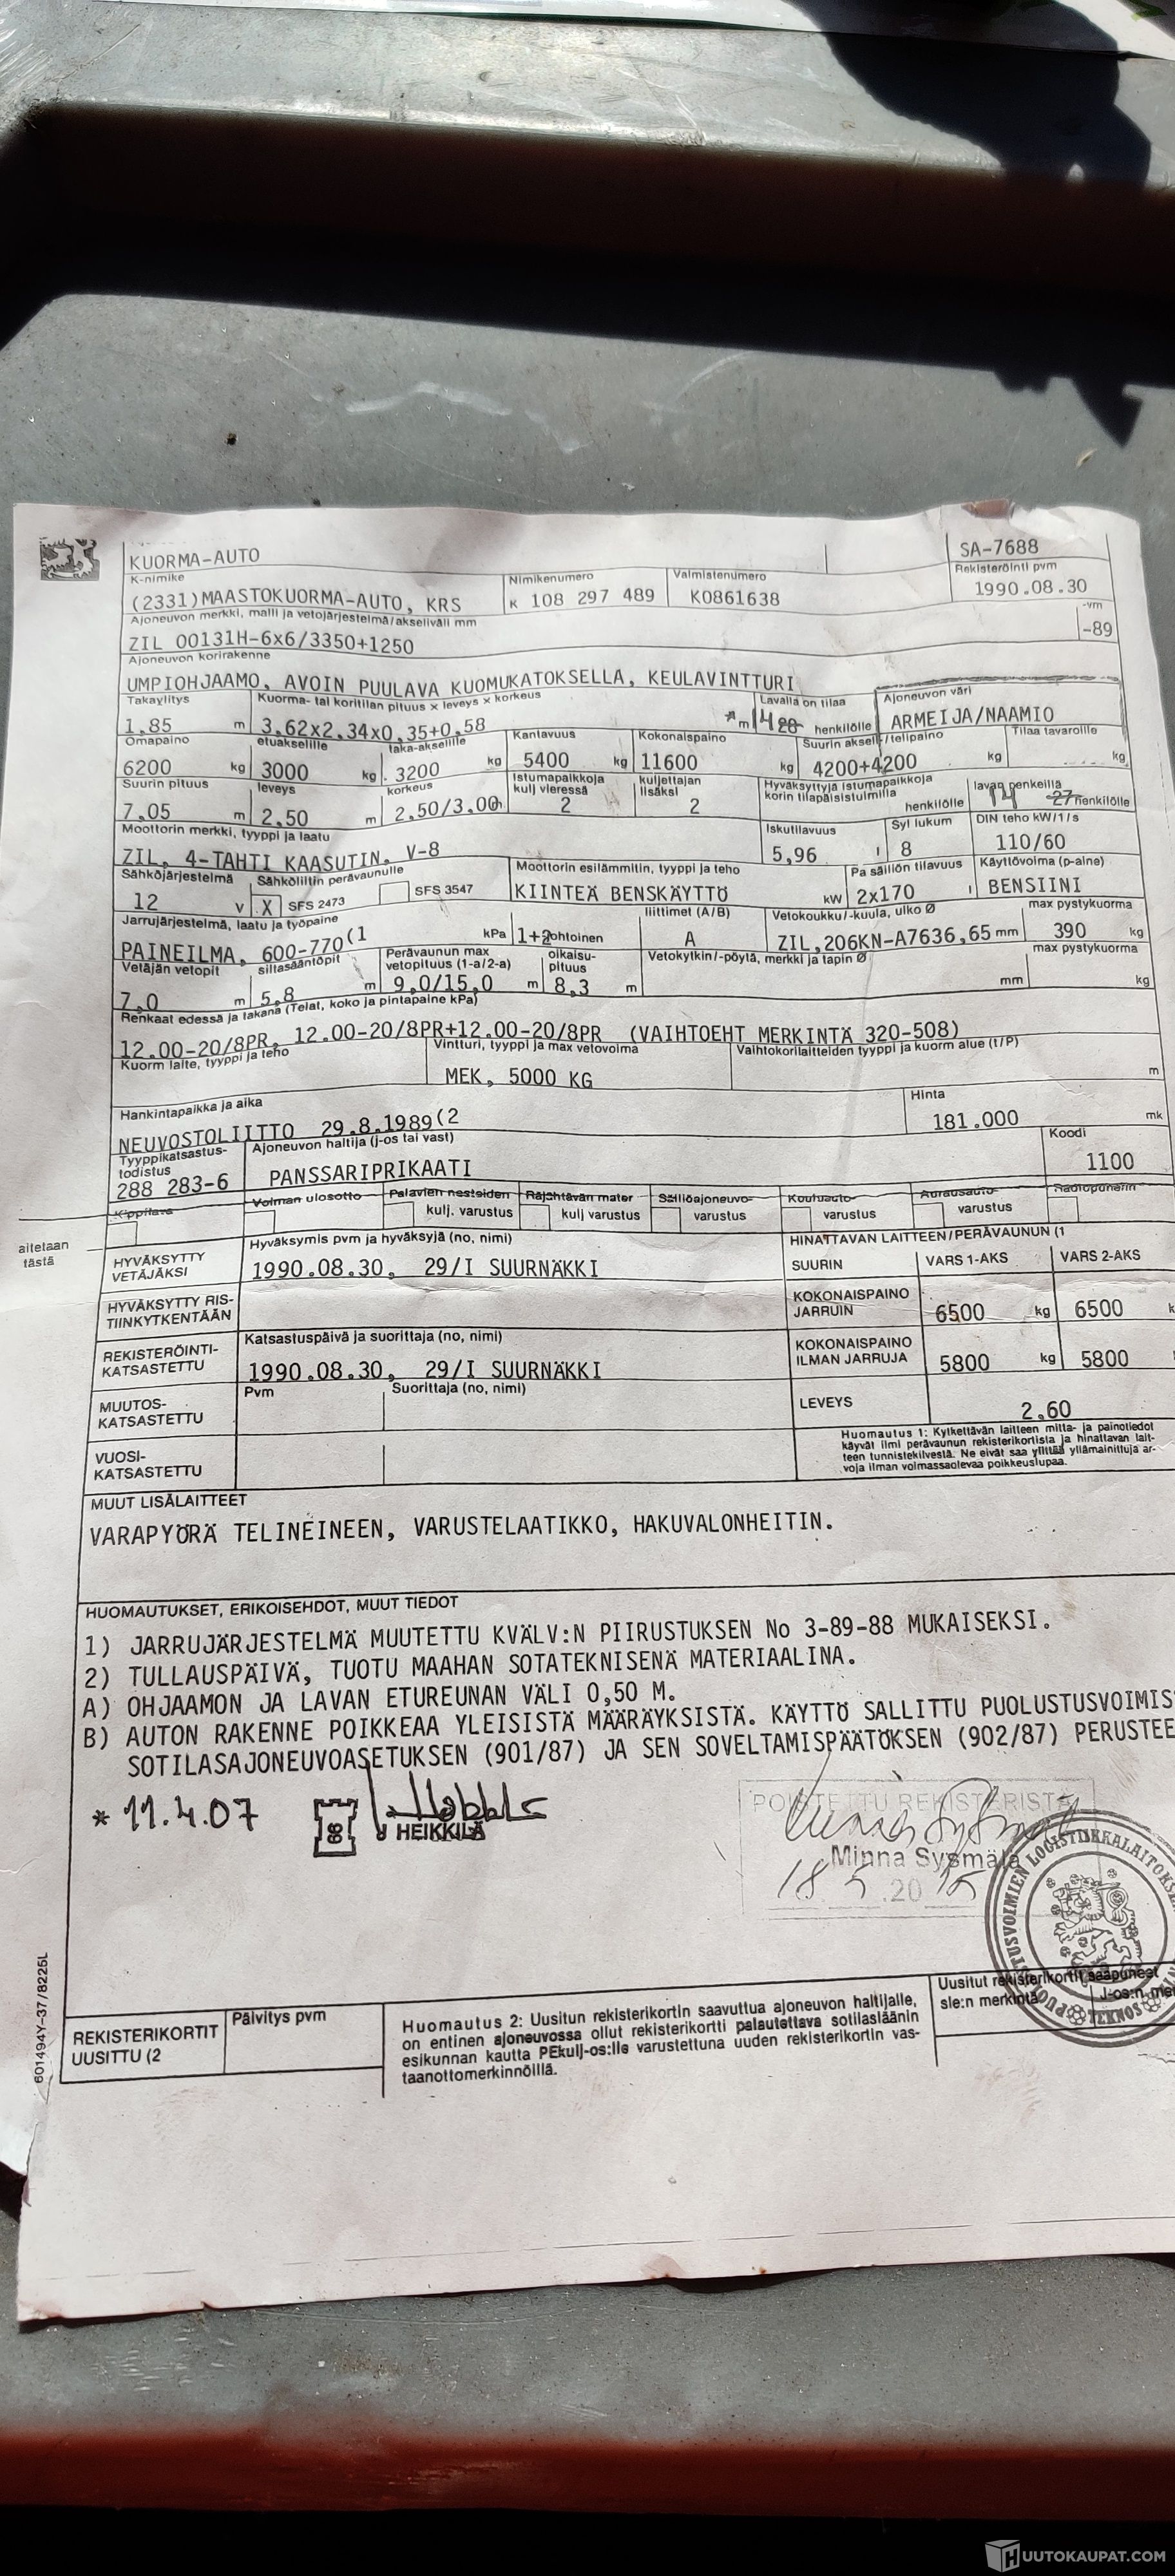 KUORMA-AUTO
SA-7688
K-nimike
Nimikenumero
Valmistenumero
Rekisteröinti pvm
(2331)MAASTOKUORMA-AUTO, KRS
K 108 297 489
K0861638
1990.08.30
Ajoneuvon merkki, malli ja vetojärjestelmä/akseliväli mm
-vm
ZIL 00131H-6x6/3350+1250
-89
Ajoneuvon korirakenne
UMPIOHJAAMO, AVOIN PUULAVA KUOMUKATOKSELLA, KEULAVINTTURI
Takaylitys
Kuorma- tai koritilan pituus x leveys x korkeus
Lavalla on tilaa
Ajoneuvon väri
1.85 m
3.62x2.34x0.35+0.58
*m 14 28 henkilölle
ARMEIJA/NAAMIO
Omapaino
etuakselille
taka-akselille
Kantavuus
Kokonaispaino
Suurin akseli/telipaino
Tilaa tavaroille
6200 kg
3000 kg
3200 kg
5400 kg
11600 kg
4200+4200 kg
kg
Suurin pituus
leveys
korkeus
Istumapaikkoja kulj vieressä
kuljettajan lisäksi
Hyväksyttyjä istumapaikkoja korin tilapäisistuimilla
lavan penkeillä
7.05 m
2.50 m
2.50/3.00m
2
2
henkilölle
14 27 henkilölle
Moottorin merkki, tyyppi ja laatu
Iskutilavuus
Syl lukum
DIN teho kW/1/s
ZIL, 4-TAHTI KAASUTIN, V-8
5,96 l
8
110/60
Sähköjärjestelmä
Sähköliitin perävaunulle
Moottorin esilämmitin, tyyppi ja teho
Pa säiliön tilavuus
Käyttövoima (p-aine)
12 v
X SFS 2473
SFS 3547
KIINTEÄ BENSKÄYTTÖ kW
2x170 l
BENSIINI
Jarrujärjestelmä, laatu ja työpaine
liittimet (A/B)
Vetokoukku/-kuula, ulko Ø
max pystykuorma
PAINEILMA, 600-770(1 kPa
1+2johtoinen
A
ZIL,206KN-A7636,65 mm
390 kg
Vetäjän vetopit
siltasääntöpit
Perävaunun max vetopituus (1-a/2-a)
oikaisu-pituus
Vetokytkin/-pöytä, merkki ja tapin Ø
max pystykuorma
7.0 m
5,8 m
9.0/15,0 m
8,3 m
mm
kg
Renkaat edessä ja takana (Telat, koko ja pintapaine kPa)
12.00-20/8PR, 12.00-20/8PR+12.00-20/8PR (VAIHTOEHT MERKINTÄ 320-508)
Kuorm laite, tyyppi ja teho
Vintturi, tyyppi ja max vetovoima
Vaihtokorilaitteiden tyyppi ja kuorm alue (t/P)
MEK, 5000 KG
m
Hankintapaikka ja aika
Hinta
NEUVOSTOLIITTO 29.8.1989(2
181.000 mk
Tyyppikatsastus-todistus
Ajoneuvon haltija (j-os tai vast)
Koodi
288 283-6
PANSSARIPRIKAATI
1100
Kippilava
Voiman ulosotto
Palavien nesteiden kulj. varustus
Räjähtävän mater kulj varustus
Säiliöajoneuvo-varustus
Kouluauto-varustus
Aurausauto-varustus
Radiopuhelin
aitetaan
tästä
HYVÄKSYTTY VETÄJÄKSI
Hyväksymis pvm ja hyväksyjä (no, nimi)
1990.08.30, 29/I SUURNÄKKI
HINATTAVAN LAITTEEN/PERÄVAUNUN (1
SUURIN
VARS 1-AKS
VARS 2-AKS
HYVÄKSYTTY RIS-TIINKYTKENTÄÄN
KOKONAISPAINO JARRUIN
6500 kg
6500
REKISTERÖINTI-KATSASTETTU
Katsastuspäivä ja suorittaja (no, nimi)
1990.08.30, 29/I SUURNÄKKI
KOKONAISPAINO ILMAN JARRUJA
5800 kg
5800
MUUTOS-KATSASTETTU
Pvm
Suorittaja (no, nimi)
LEVEYS
2.60
VUOSI-KATSASTETTU
Huomautus 1: Kytkettävän laitteen mitta- ja painotiedot
käyvät ilmi perävaunun rekisterikortista ja hinattavan lait-
teen tunnistekilvestä. Ne eivät saa ylittää yllämainittuja ar-
voja ilman voimassaolevaa poikkeuslupaa.
MUUT LISÄLAITTEET
VARAPYÖRÄ TELINEINEEN, VARUSTELAATIKKO, HAKUVALONHEITIN.
HUOMAUTUKSET, ERIKOISEHDOT, MUUT TIEDOT
1) JARRUJÄRJESTELMÄ MUUTETTU KVÄLV:N PIIRUSTUKSEN No 3-89-88 MUKAISEKSI.
2) TULLAUSPÄIVÄ, TUOTU MAAHAN SOTATEKNISENÄ MATERIAALINA.
A) OHJAAMON JA LAVAN ETUREUNAN VÄLI 0,50 M.
B) AUTON RAKENNE POIKKEAA YLEISISTÄ MÄÄRÄYKSISTÄ. KÄYTTÖ SALLITTU PUOLUSTUSVOIMIS
SOTILASAJONEUVOASETUKSEN (901/87) JA SEN SOVELTAMISPÄÄTÖKSEN (902/87) PERUSTEE
* 11.4.07
88
HEIKKILÄ
POISTETTU REKISTERISTÄ
Minna Sysmälä
18 5 .20 15
PUOLUSTUSVOIMIEN LOGISTIIKKALAITOKSEN
601494Y-37/8225L
REKISTERIKORTIT UUSITTU (2
Päivitys pvm
Huomautus 2: Uusitun rekisterikortin saavuttua ajoneuvon haltijalle,
on entinen ajoneuvossa ollut rekisterikortti palautettava sotilasläänin
esikunnan kautta PEkulj-os:lle varustettuna uuden rekisterikortin vas-
taanottomerkinnöillä.
Uusitut rekisterikortit saapuneet
sle:n merkintä
J-os:n mer
HUUTOKAUPAT.COM